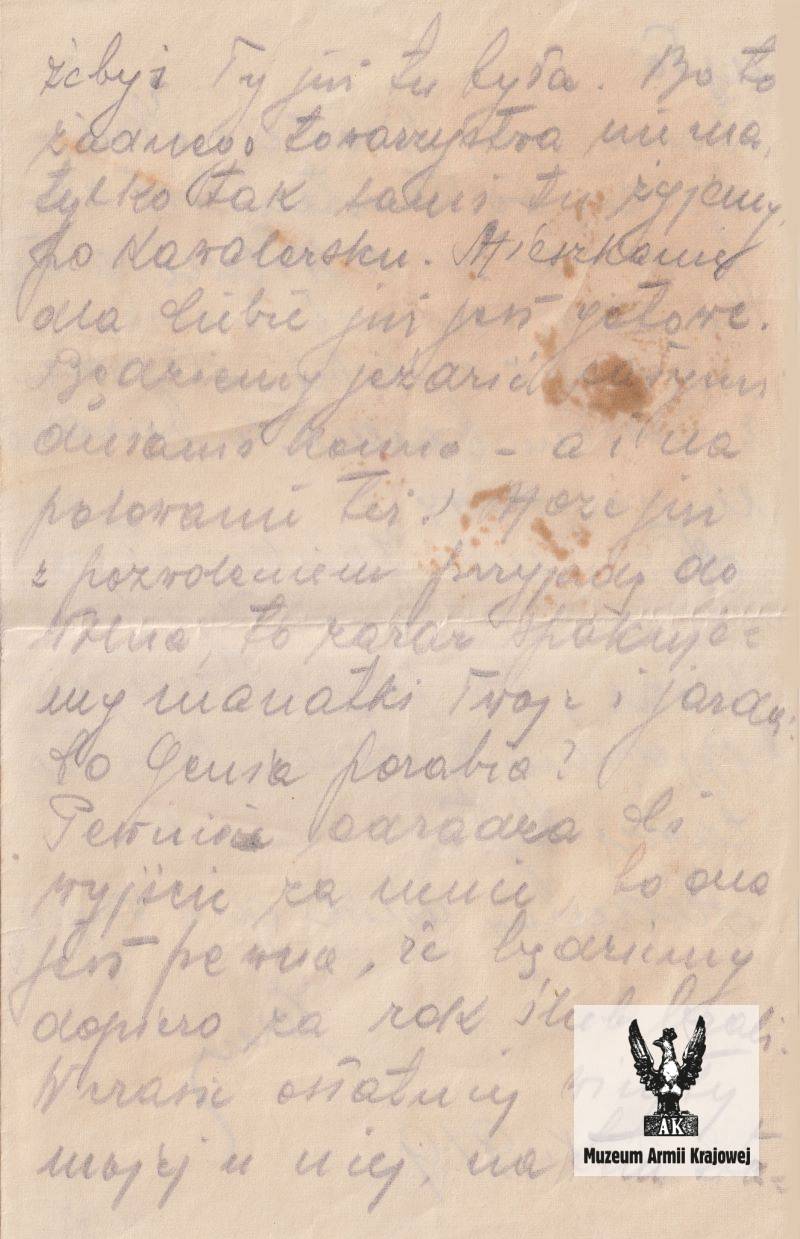 żebyś Ty już tu była. Bo to
żadnego towarzystwa niema,
tylko tak sami tu żyjemy
po kawalersku. Mieszkanie
dla Ciebie już jest gotowe.
Będziemy jeździć całymi
dniami konno – a i na
polowanie też! Może już
z pozwoleniem przyjadę do
Wilna, to zaraz spakuje=
my manatki Twoje i jazda!
Co Genia porabia?
Pewnie odradza Ci
wyjście za mnie, bo ona
jest pewna, że będziemy
dopiero za rok ślub brali.
W czasie ostatniej wizyty
mojej u niej, na
AK
Muzeum Armii Krajowej